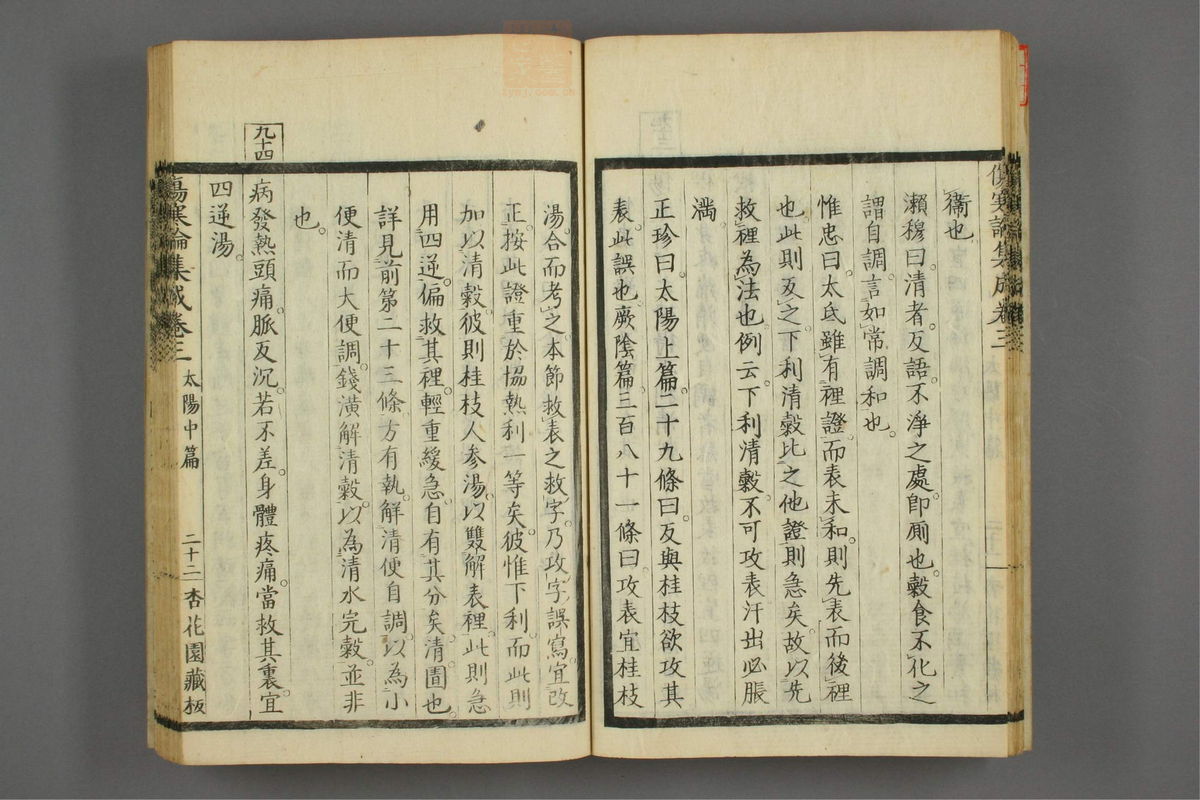 傷寒論集成卷三
衞也
瀬穆曰。清者。反語。不淨之處。即厠也。穀食不化之
謂自調言如常調和也。
惟忠曰。太氐雖有裡證。而表未和。則先表而後裡
也。此則反之。下利清穀比之他證則急矣。故以先
救裡為法也。例云。下利清穀。不可攻表。汗出必脹
滿。
正珍曰。太陽上篇。二十九條曰。反與桂枝欲攻其
表。此誤也。厥陰篇。三百八十一條曰。攻表宜桂枝
湯。合而考之。本節救表之救字。乃攻字誤寫。宜改
正。按此證重於協熱利一等矣。彼惟下利。而此則
加以清穀。彼則桂枝人參湯。以雙解表裡。此則急
用四逆。偏救其裡。輕重緩急。自有其分矣。清圊也。
詳見前第二十三條。方有執解清便自調。以為小
便清而大便調。錢潢解清穀。以為清水完穀。並非
也。
九十四
病發熱頭痛。脈反沉。若不差。身體疼痛。當救其裏。宜
四逆湯。
傷寒論集成卷三 太陽中篇 二十二 杏花園藏板